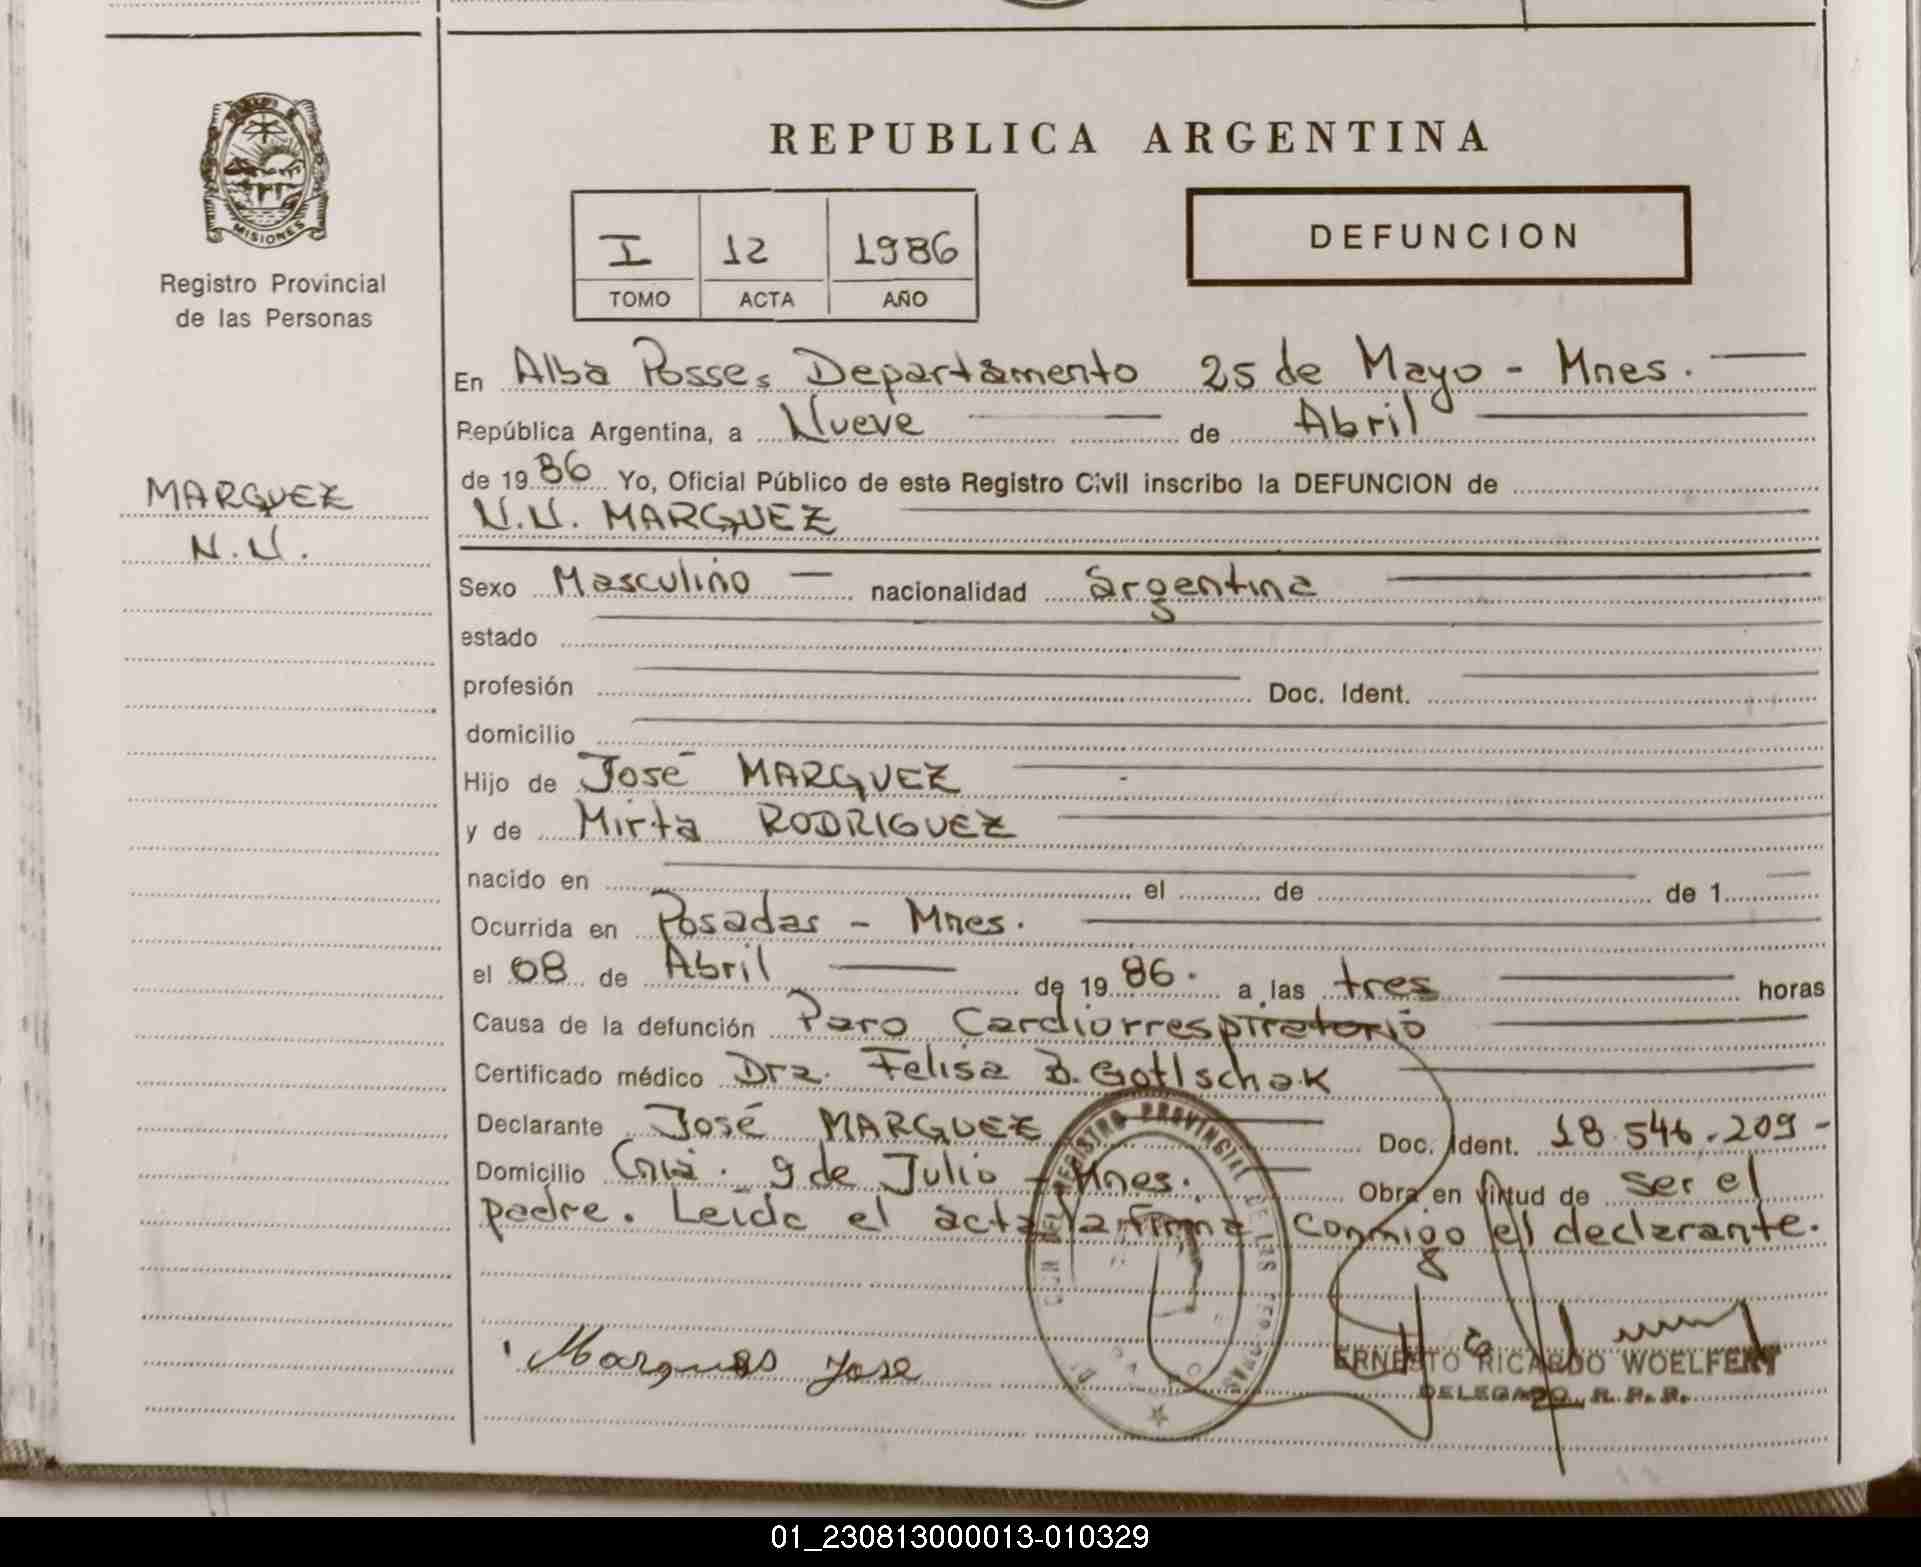 MISIONES
Registro Provincial
de las Personas
MARQUEZ
N.N.
REPUBLICA ARGENTINA
I 12 1986
TOMO ACTA AÑO
DEFUNCION
En Alba Posse, Departamento 25 de Mayo - Mnes.
República Argentina, a Nueve de Abril
de 1986 Yo, Oficial Público de este Registro Civil inscribo la DEFUNCION de
N.N. MARQUEZ
Sexo Masculino nacionalidad argentina
estado
profesión Doc. Ident.
domicilio
Hijo de José MARQUEZ
y de Mirta RODRIGUEZ
nacido en el de de 1
Ocurrida en Posadas - Mnes.
el 08 de Abril de 1986. a las tres horas
Causa de la defunción Paro Cardiorrespiratorio
Certificado médico Dra. Felisa B. Gotlschak
Declarante José MARQUEZ Doc. Ident. 18.546.209-
Domicilio Cnia. 9 de Julio - Mnes. Obra en virtud de ser el
padre. Leida el acta la firma conmigo el declarante.
REGISTRO PROVINCIAL DE LAS PERSONAS
Marques Jose
ERNESTO RICARDO WOELFERT
DELEGADO R. P. P.
01_230813000013-010329